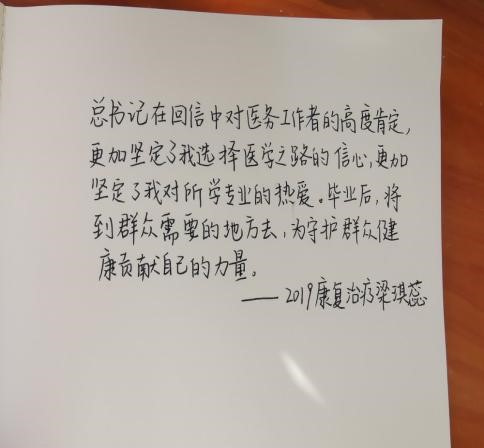 总书记在回信中对医务工作者的高度肯定,
更加坚定了我选择医学之路的信心,更加
坚定了我对所学专业的热爱。毕业后,将
到群众需要的地方去,为守护群众健
康贡献自己的力量。
——2019康复治疗梁琪蕊